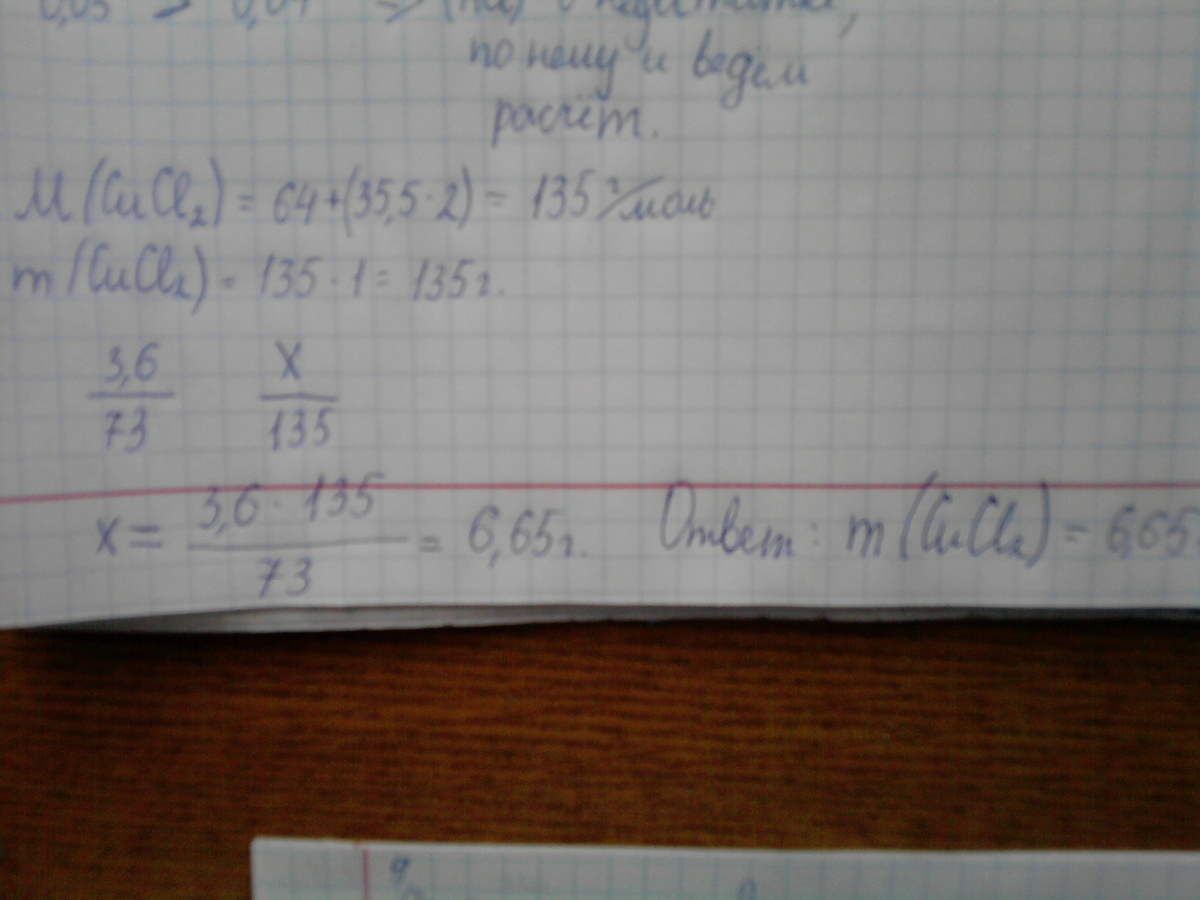 0,05 > 0,04 => (HCl) в недостатке,
по нему и ведём
расчёт.
M(CuCl₂) = 64+(35,5·2) = 135 г/моль
m(CuCl₂) = 135·1 = 135г.
3,6 X
73 135
x = 3,6·135 = 6,65г. Ответ: m(CuCl₂) = 6,65
73